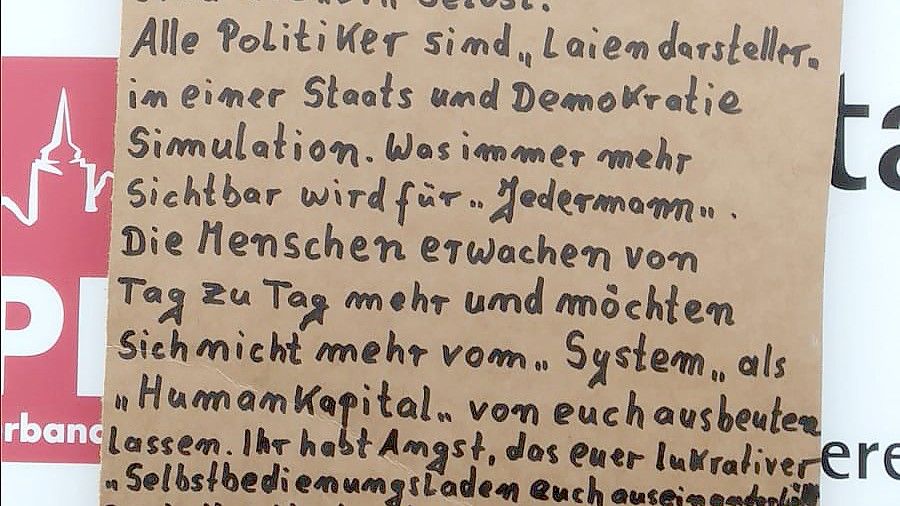 selbst.
Alle Politiker sind „Laiendarsteller„
in einer Staats und Demokratie
Simulation. Was immer mehr
Sichtbar wird für „Jedermann".
Die Menschen erwachen von
Tag zu Tag mehr und möchten
Sich nicht mehr vom „System„ als
„HumanKapital„ von euch ausbeuten
lassen. Ihr habt Angst, das euer lukrativer
„Selbstbedienungsladen euch
ta
P
rband
ere